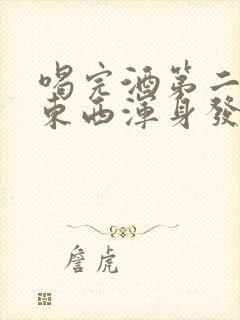 喝完酒第二
東西渾身發
詹虎